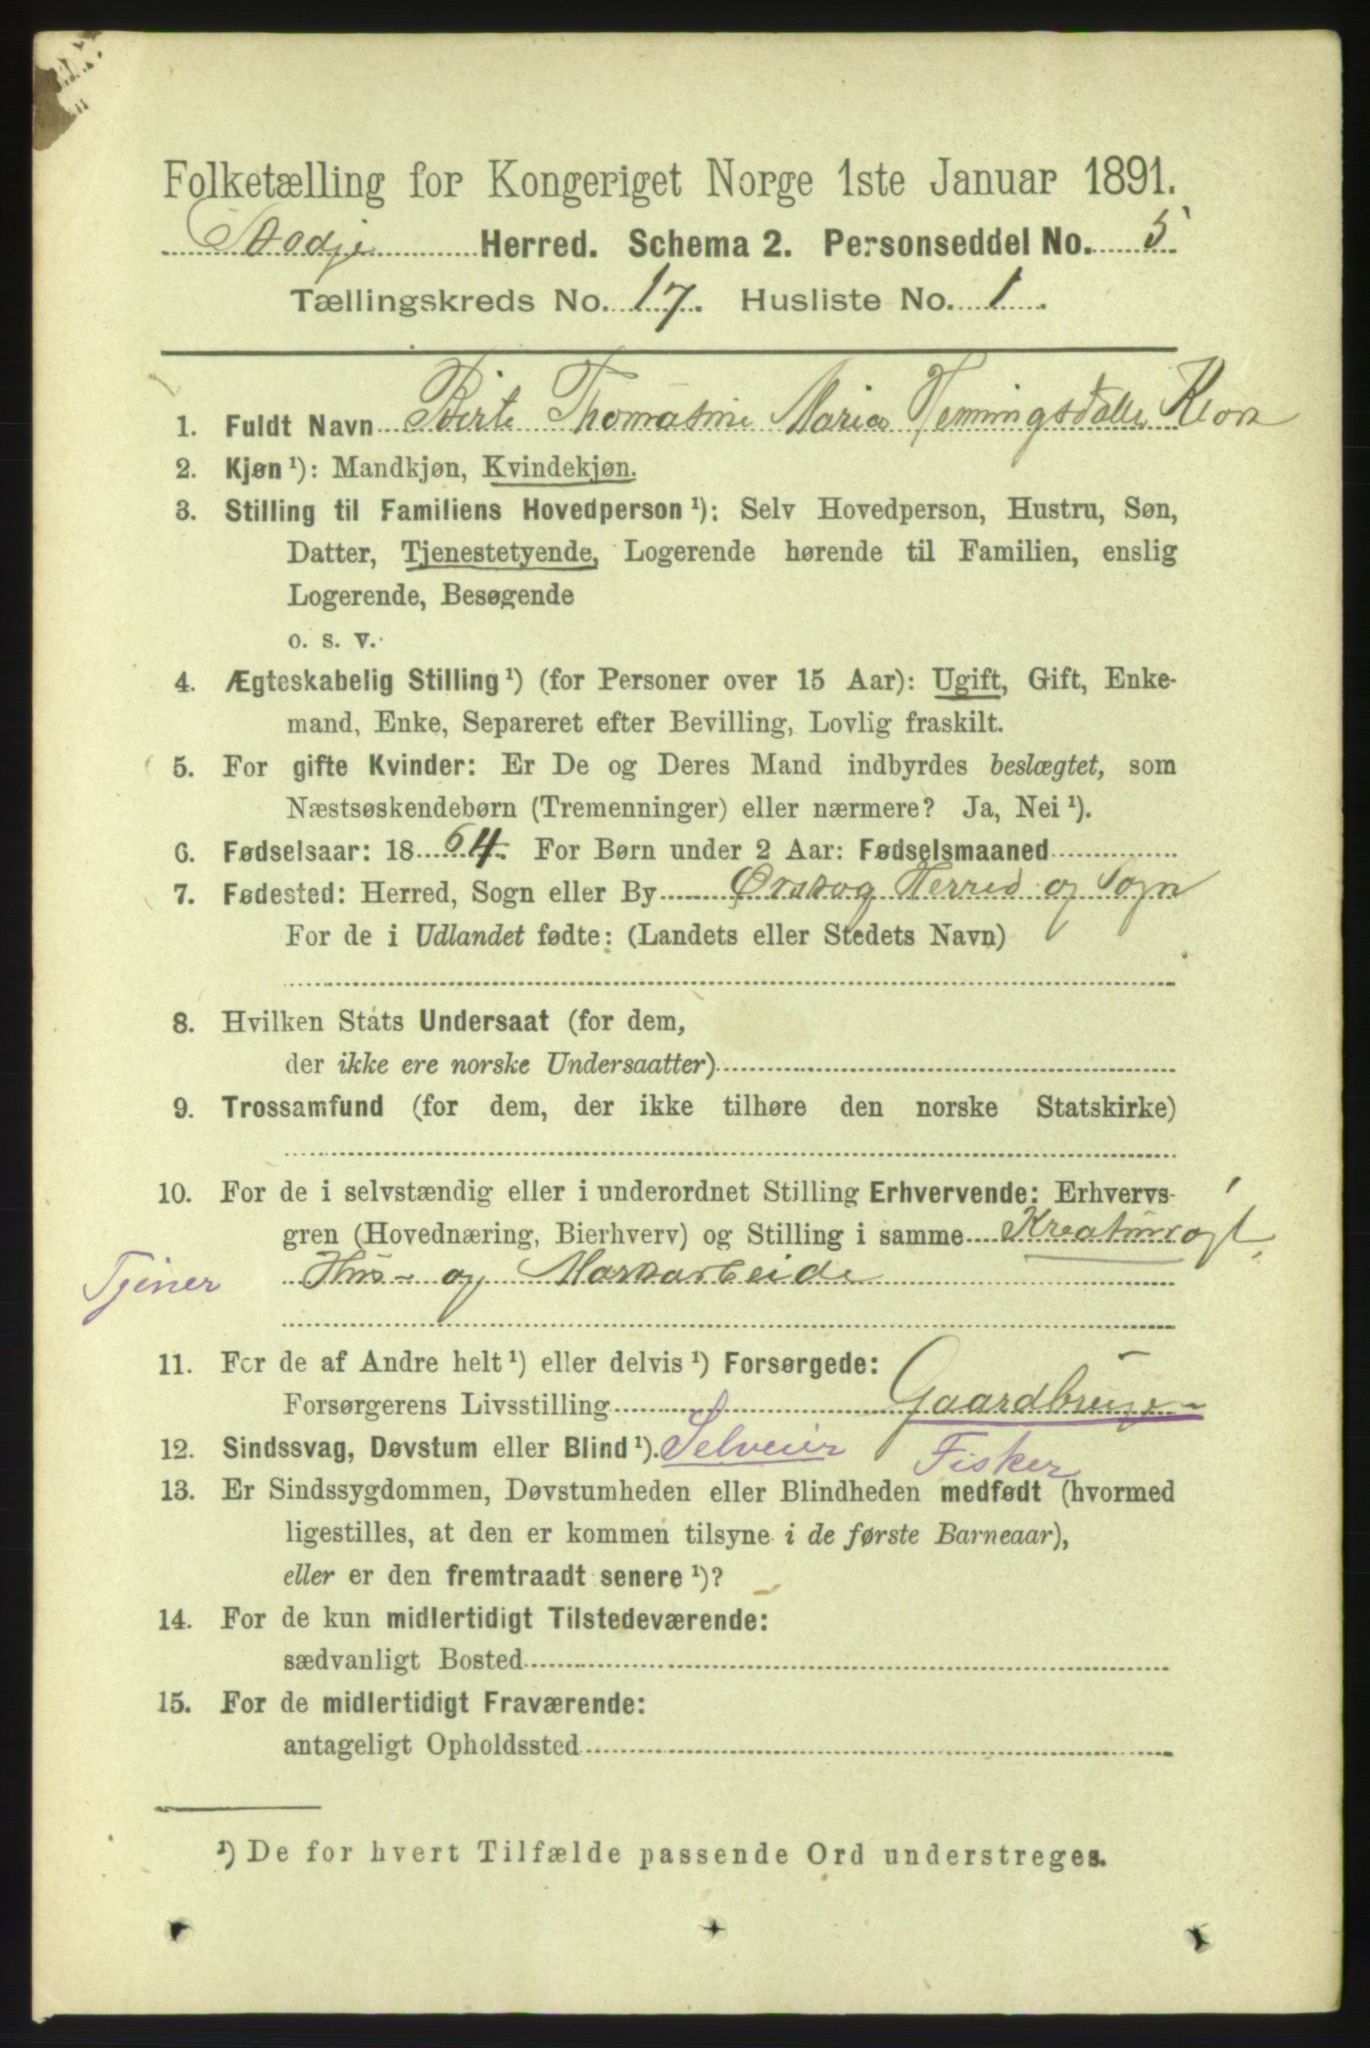 Folketælling for Kongeriget Norge 1ste Januar 1891.
Stodje Herred. Schema 2. Personseddel No. 5
Tællingskreds No. 17. Husliste No. 1.
1. Fuldt Navn Birte Thomasine Maria
2. Kjøn ¹): Mandkjøn, Kvindekjøn.
3. Stilling til Familiens Hovedperson ¹): Selv Hovedperson, Hustru, Søn,
Datter, Tjenestetyende, Logerende hørende til Familien, enslig
Logerende, Besøgende
o. s. v.
4. Ægteskabelig Stilling ¹) (for Personer over 15 Aar): Ugift, Gift, Enke-
mand, Enke, Separeret efter Bevilling, Lovlig fraskilt.
5. For gifte Kvinder: Er De og Deres Mand indbyrdes beslægtet, som
Næstsøskendebørn (Tremenninger) eller nærmere? Ja, Nei ¹).
6. Fødselsaar: 1864. For Børn under 2 Aar: Fødselsmaaned
7. Fødested: Herred, Sogn eller By Ørskog Herred og Sogn
For de i Udlandet fødte: (Landets eller Stedets Navn)
8. Hvilken Stats Undersaat (for dem,
der ikke ere norske Undersaatter)
9. Trossamfund (for dem, der ikke tilhøre den norske Statskirke)
10. For de i selvstændig eller i underordnet Stilling Erhvervende: Erhvervs-
gren (Hovednæring, Bierhverv) og Stilling i samme Kreaturrøgt.
Tjener Hus- og Markarbeide
11. For de af Andre helt ¹) eller delvis ¹) Forsørgede:
Forsørgerens Livsstilling Gaardbruger
12. Sindssvag, Døvstum eller Blind ¹). Selveier Fisker
13. Er Sindssygdommen, Døvstumheden eller Blindheden medfødt (hvormed
ligestilles, at den er kommen tilsyne i de første Barneaar),
eller er den fremtraadt senere ¹)?
14. For de kun midlertidigt Tilstedeværende:
sædvanligt Bosted
15. For de midlertidigt Fraværende:
antageligt Opholdssted
¹) De for hvert Tilfælde passende Ord understreges.